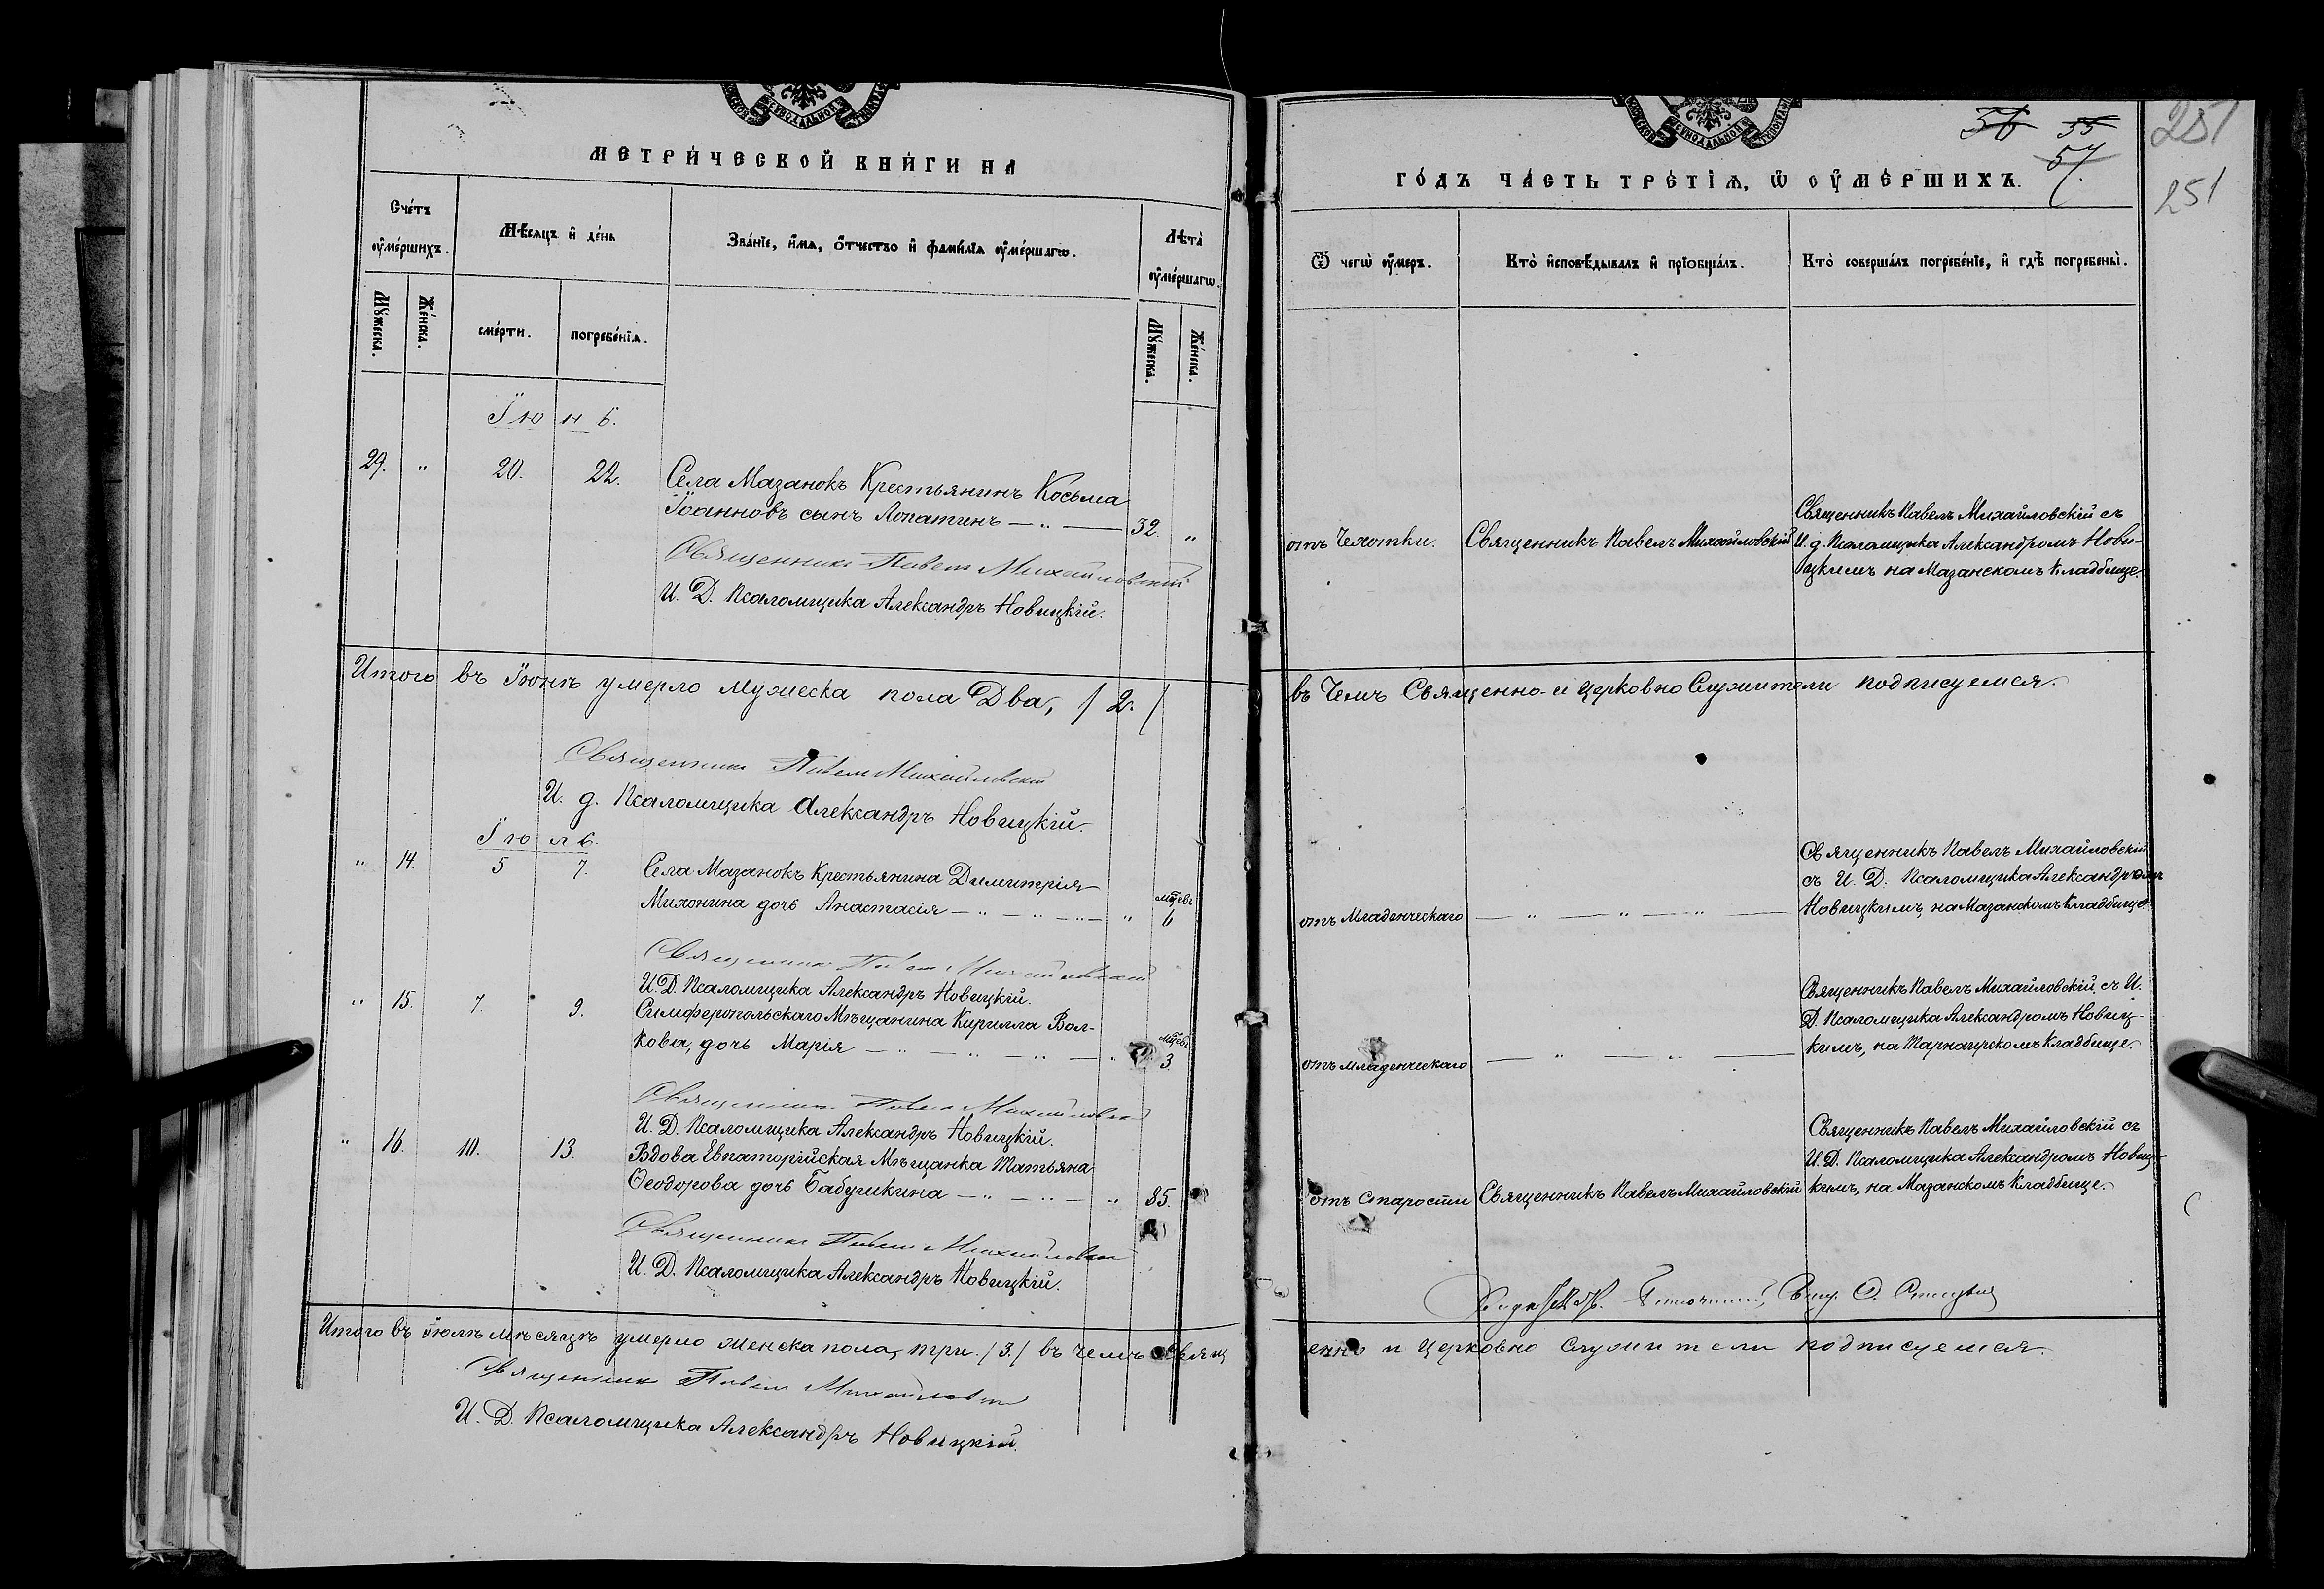 МЕТРИЧЕСКОЙ КНИГИ НА
Счетъ
оумершихъ.
Мѣсяцъ и день
Званіе, имя, отчество и фамилія оумершагѡ.
Лѣта
оумершагѡ.
Мужеска.
Женска.
смерти.
погребенія.
Мужеска.
Женска.
Іюнь.
29. " 20. 22. Села Мазанокъ Крестьянинъ Косьма
Іоанновъ сынъ Лопатинъ — " — 32. "
Священникъ Павелъ Михайловскій
И. Д. Псаломщика Александръ Новицкій.
Итого въ Іюнѣ умерло мужеска пола Два, / 2. /
Священникъ Павелъ Михайловскій
И. д. Псаломщика Александръ Новицкій.
Іюль.
" 14. 5 7. Села Мазанокъ Крестьянина Димитрія
Михонина дочь Анастасія — " — " — " — " мцевъ 6
Священникъ Павелъ Михайловскій
И. Д. Псаломщика Александръ Новицкій.
" 15. 7. 9. Симферопольскаго Мѣщанина Кирилла Вол-
кова, дочь Марія — " — " — " — " мцевъ 3
Священникъ Павелъ Михайловскій
И. Д. Псаломщика Александръ Новицкій.
" 16. 10. 13. Вдова Евпаторійская Мѣщанка Татьяна
Ѳеодорова дочь Бабушкина — " — " — " 85.
Священникъ Павелъ Михайловскій
И. Д. Псаломщика Александръ Новицкій.
Итого въ Іюлѣ мѣсяцѣ умерло женска пола, три. / 3. / въ чемъ Свящ
Священникъ Павелъ Михайловскій
И. Д. Псаломщика Александръ Новицкій.
56 55 251
57.
251
ГОДЪ ЧАСТЬ ТРЕТІЯ, Ѡ ОУМЕРШИХЪ.
Ѿ чегѡ оумеръ.
Кто исповѣдывалъ и пріобщалъ.
Кто совершалъ погребеніе, и гдѣ погребены.
отъ Чахотки. Священникъ Павелъ Михайловскій
Священникъ Павелъ Михайловскій съ
И. д. Псаломщика Александромъ Нови-
цкимъ на Мазанскомъ Кладбище.
въ Чемъ Священно- и церковно Служители подписуемся.
отъ Младенческаго — " — " — " —
Священникъ Павелъ Михайловскій
съ И. Д. Псаломщика Александромъ
Новицкимъ, на Мазанскомъ Кладбище.
отъ младенческаго — " — " —
Священникъ Павелъ Михайловскій, съ И.
Д. Псаломщика Александромъ Новиц-
кимъ, на Кладбище.
отъ Старости Священникъ Павелъ Михайловскій
Священникъ Павелъ Михайловскій съ
И. Д. Псаломщика Александромъ Новиц-
кимъ, на Мазанскомъ Кладбище.
енно и церковно служители подписуемся.